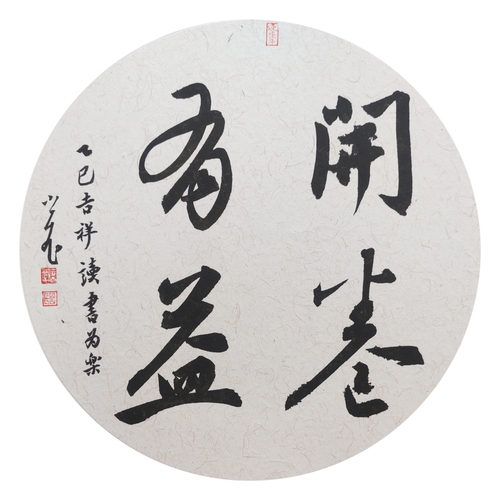 開卷
有益
乙巳吉祥讀書為樂